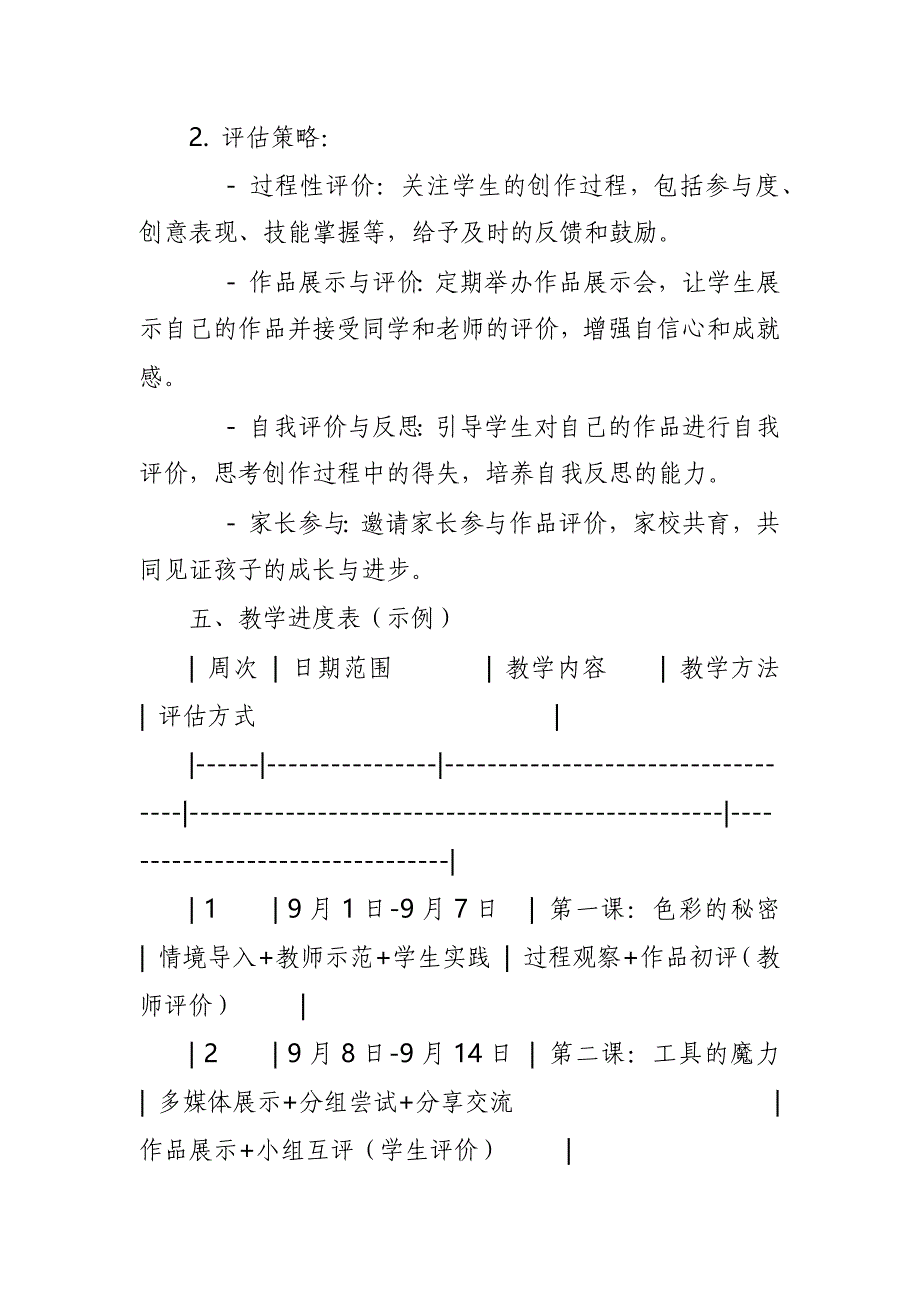 2. 评估策略：
- 过程性评价：关注学生的创作过程，包括参与度、
创意表现、技能掌握等，给予及时的反馈和鼓励。
- 作品展示与评价：定期举办作品展示会，让学生展
示自己的作品并接受同学和老师的评价，增强自信心和成就
感。
- 自我评价与反思：引导学生对自己的作品进行自我
评价，思考创作过程中的得失，培养自我反思的能力。
- 家长参与：邀请家长参与作品评价，家校共育，共
同见证孩子的成长与进步。
五、教学进度表（示例）
| 周次 | 日期范围 | 教学内容 | 教学方法
| 评估方式 |
|------|----------------|-------------------------------
----|--------------------------------------------------|----
-----------------------------|
| 1 | 9月1日-9月7日 | 第一课：色彩的秘密
| 情境导入+教师示范+学生实践 | 过程观察+作品初评（教
师评价） |
| 2 | 9月8日-9月14日 | 第二课：工具的魔力
| 多媒体展示+分组尝试+分享交流 |
作品展示+小组互评（学生评价） |